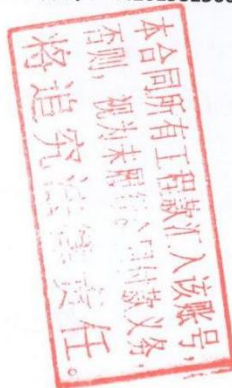 本合同所有工程款汇入该账号,
否则,视为未履行合同付款义务,
将追究法律责任。